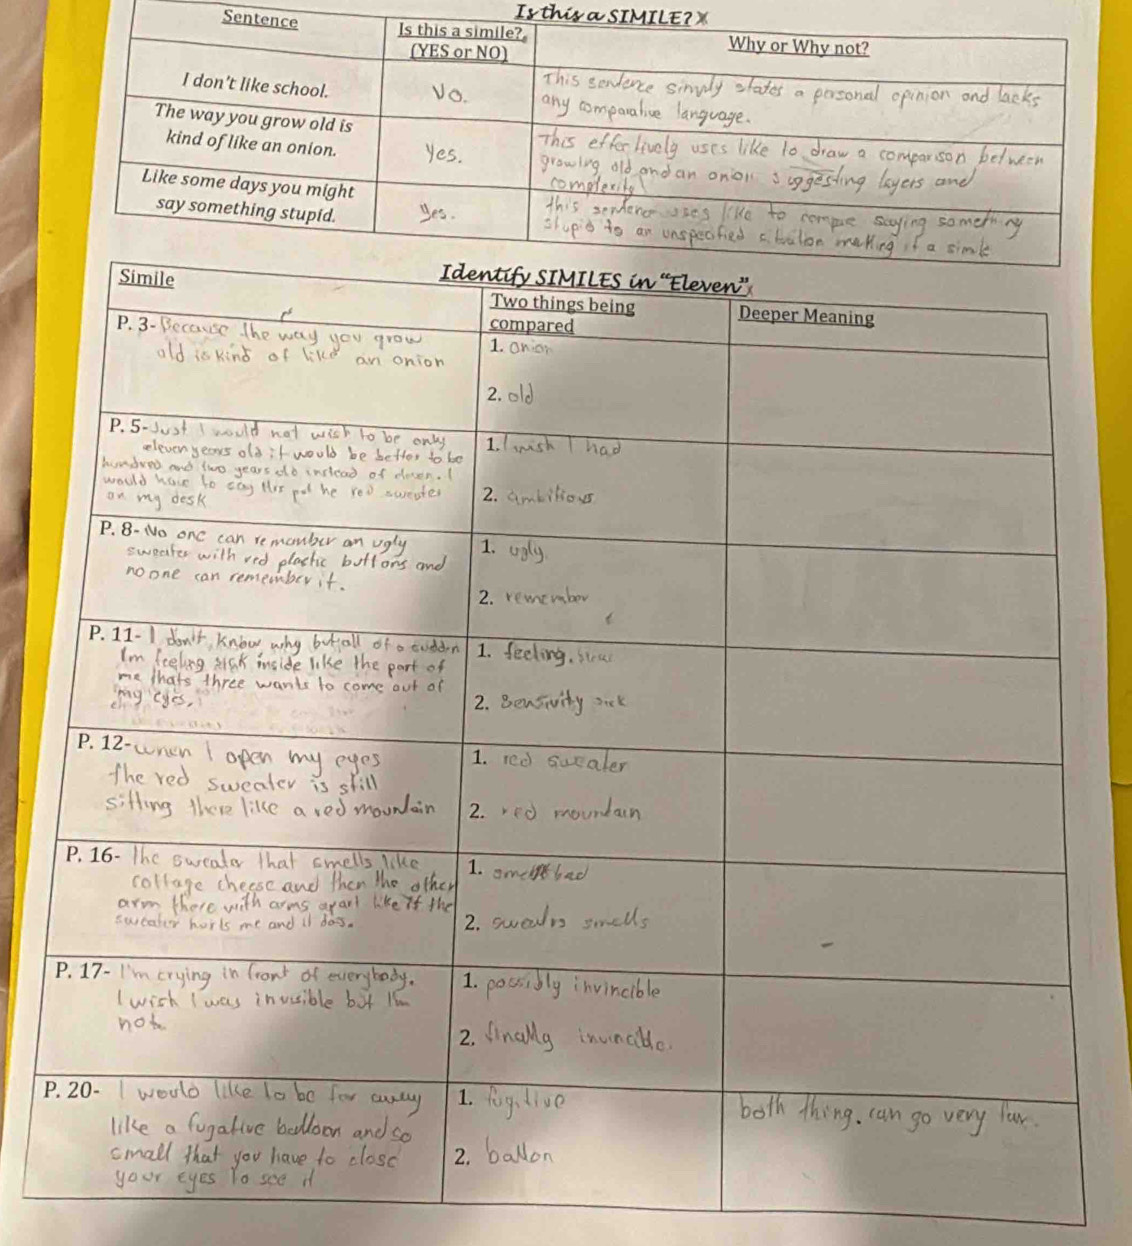 Is this a SIMILE?
Sentence
Is this a simile?
(YES or NO)
Why or Why not?
I don't like school.
No.
This sentence simply states a personal opinion and lacks
any comparative language.
The way you grow old is
kind of like an onion.
Yes.
This effectively uses like to draw a comparison between
growing old and an onion suggesting layers and
complexity
Like some days you might
say something stupid.
Yes.
this sentence uses like to compare saying something
stupid to an unspecified situation making it a simile
Identify SIMILES in "Eleven"
Simile
Two things being
compared
Deeper Meaning
P. 3- Because the way you grow
old is kind of like an onion
1. onion
2. old
P. 5- Just I would not wish to be only
eleven years old it would be better to be
hundred and two years old instead of eleven. I
would have to say this put the red sweater
on my desk
1. I wish I had
2. ambitious
P. 8- No one can remember an ugly
sweater with red plastic buttons and
no one can remember it.
1. ugly.
2. remember
P. 11- I don't know why but all of a sudden
Im feeling sick inside like the part of
me thats three wants to come out of
my eyes.
1. feeling.
2. Sensivity sick
P. 12- when I open my eyes
the red sweater is still
sitting there like a red mountain
1. red sweater
2. red mountain
P. 16- The sweater that smells like
cottage cheese and then the other
arm there with arms apart like if the
sweater hurts me and it dos.
1. bad
2. smells
P. 17- I'm crying in front of everybody.
I wish I was invisible but I'm
not.
1. possibly invincible
2. finally
P. 20- I would like to be far away
like a fugative balloon and so
small that you have to close
your eyes to see it
1. fugitive
2. ballon
both thing. can go very far.